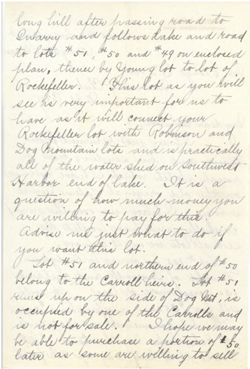 long hill after passing road to
Quarry and follows Lake and road
to lots #51, #50 and #49 on enclosed
plan, thence by Young lot to lot of
Rockefeller. This lot as you will
see is very important for us to
have as it will connect your
Rockefeller lot with Robinson and
Dog Mountain lots and is practically
all of the water shed on Southwest
Harbor end of lake. It is a
question of how much money you
are willing to pay for this.
Advise me just what to do if
you want this lot.
Lot #51 and northern end of #50
belong to the Carroll heirs. Lot #51
runs up on the side of Dog Mt. is
occupied by one of the Carrolls and
is not for sale. I hope we may
be able to purchase a portion of #50
later as some are willing to sell